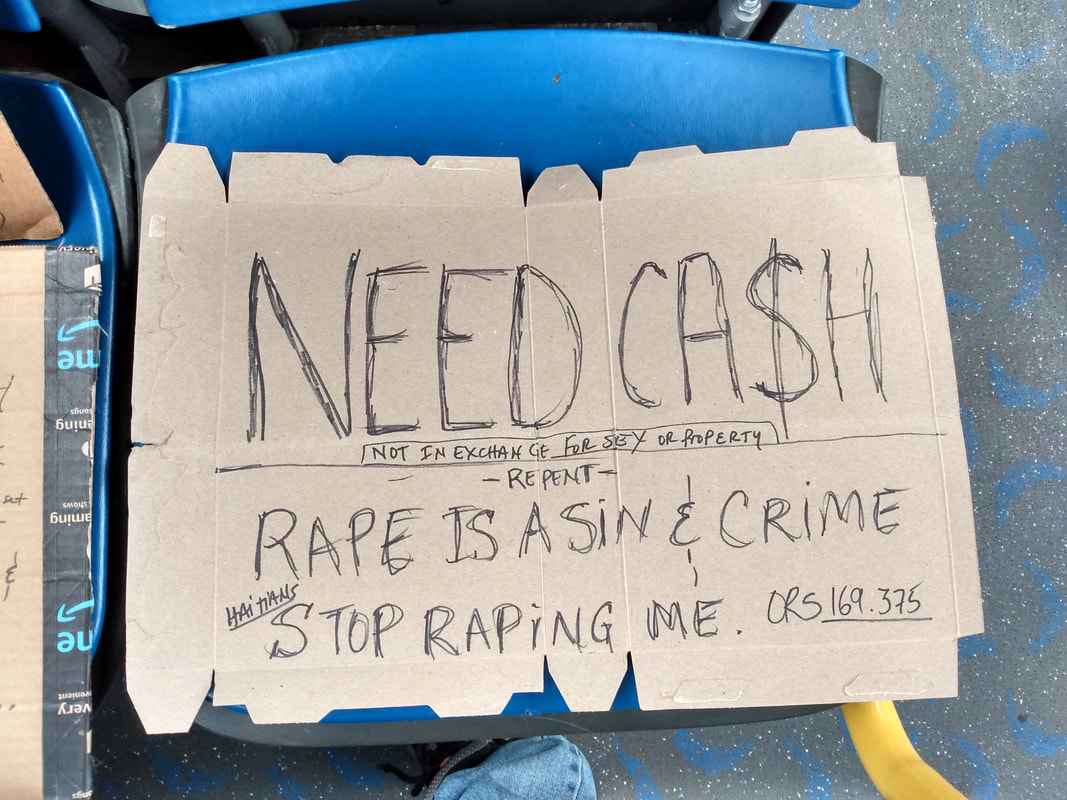 NEED CA$H
NOT IN EXCHANGE FOR SEX OR PROPERTY
- REPENT -
RAPE IS A SIN & CRIME
HAITIANS
STOP RAPING ME. ORS 169.375
me
ening
songs
shows
aming
me
venient
very